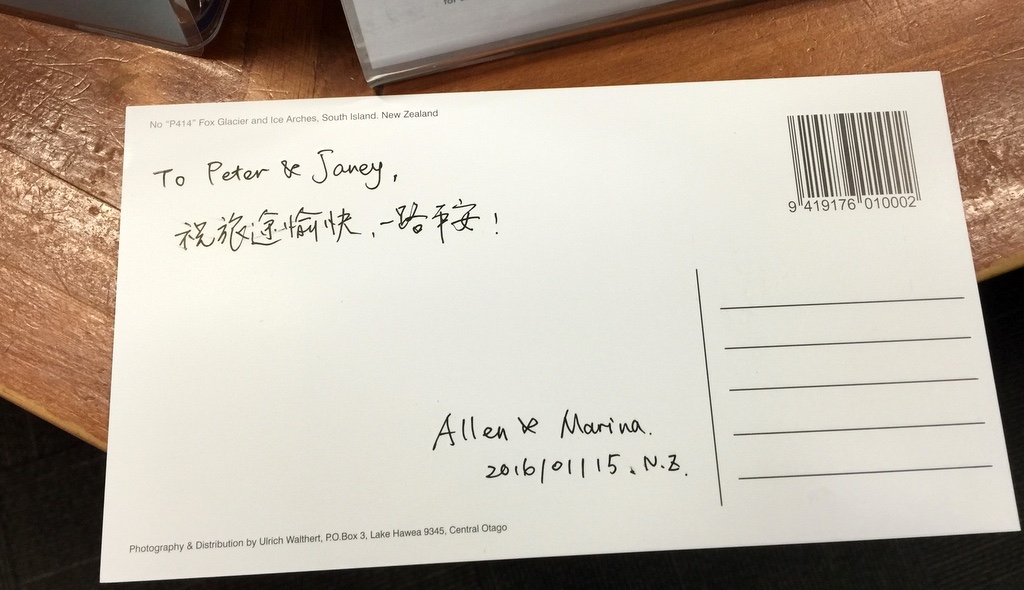 No "P414" Fox Glacier and Ice Arches, South Island. New Zealand
To Peter & Janey,
祝旅途愉快,一路平安!
9 419176 010002
Allen & Marina.
2016/01/15, N.Z.
Photography & Distribution by Ulrich Walthert, P.O.Box 3, Lake Hawea 9345, Central Otago